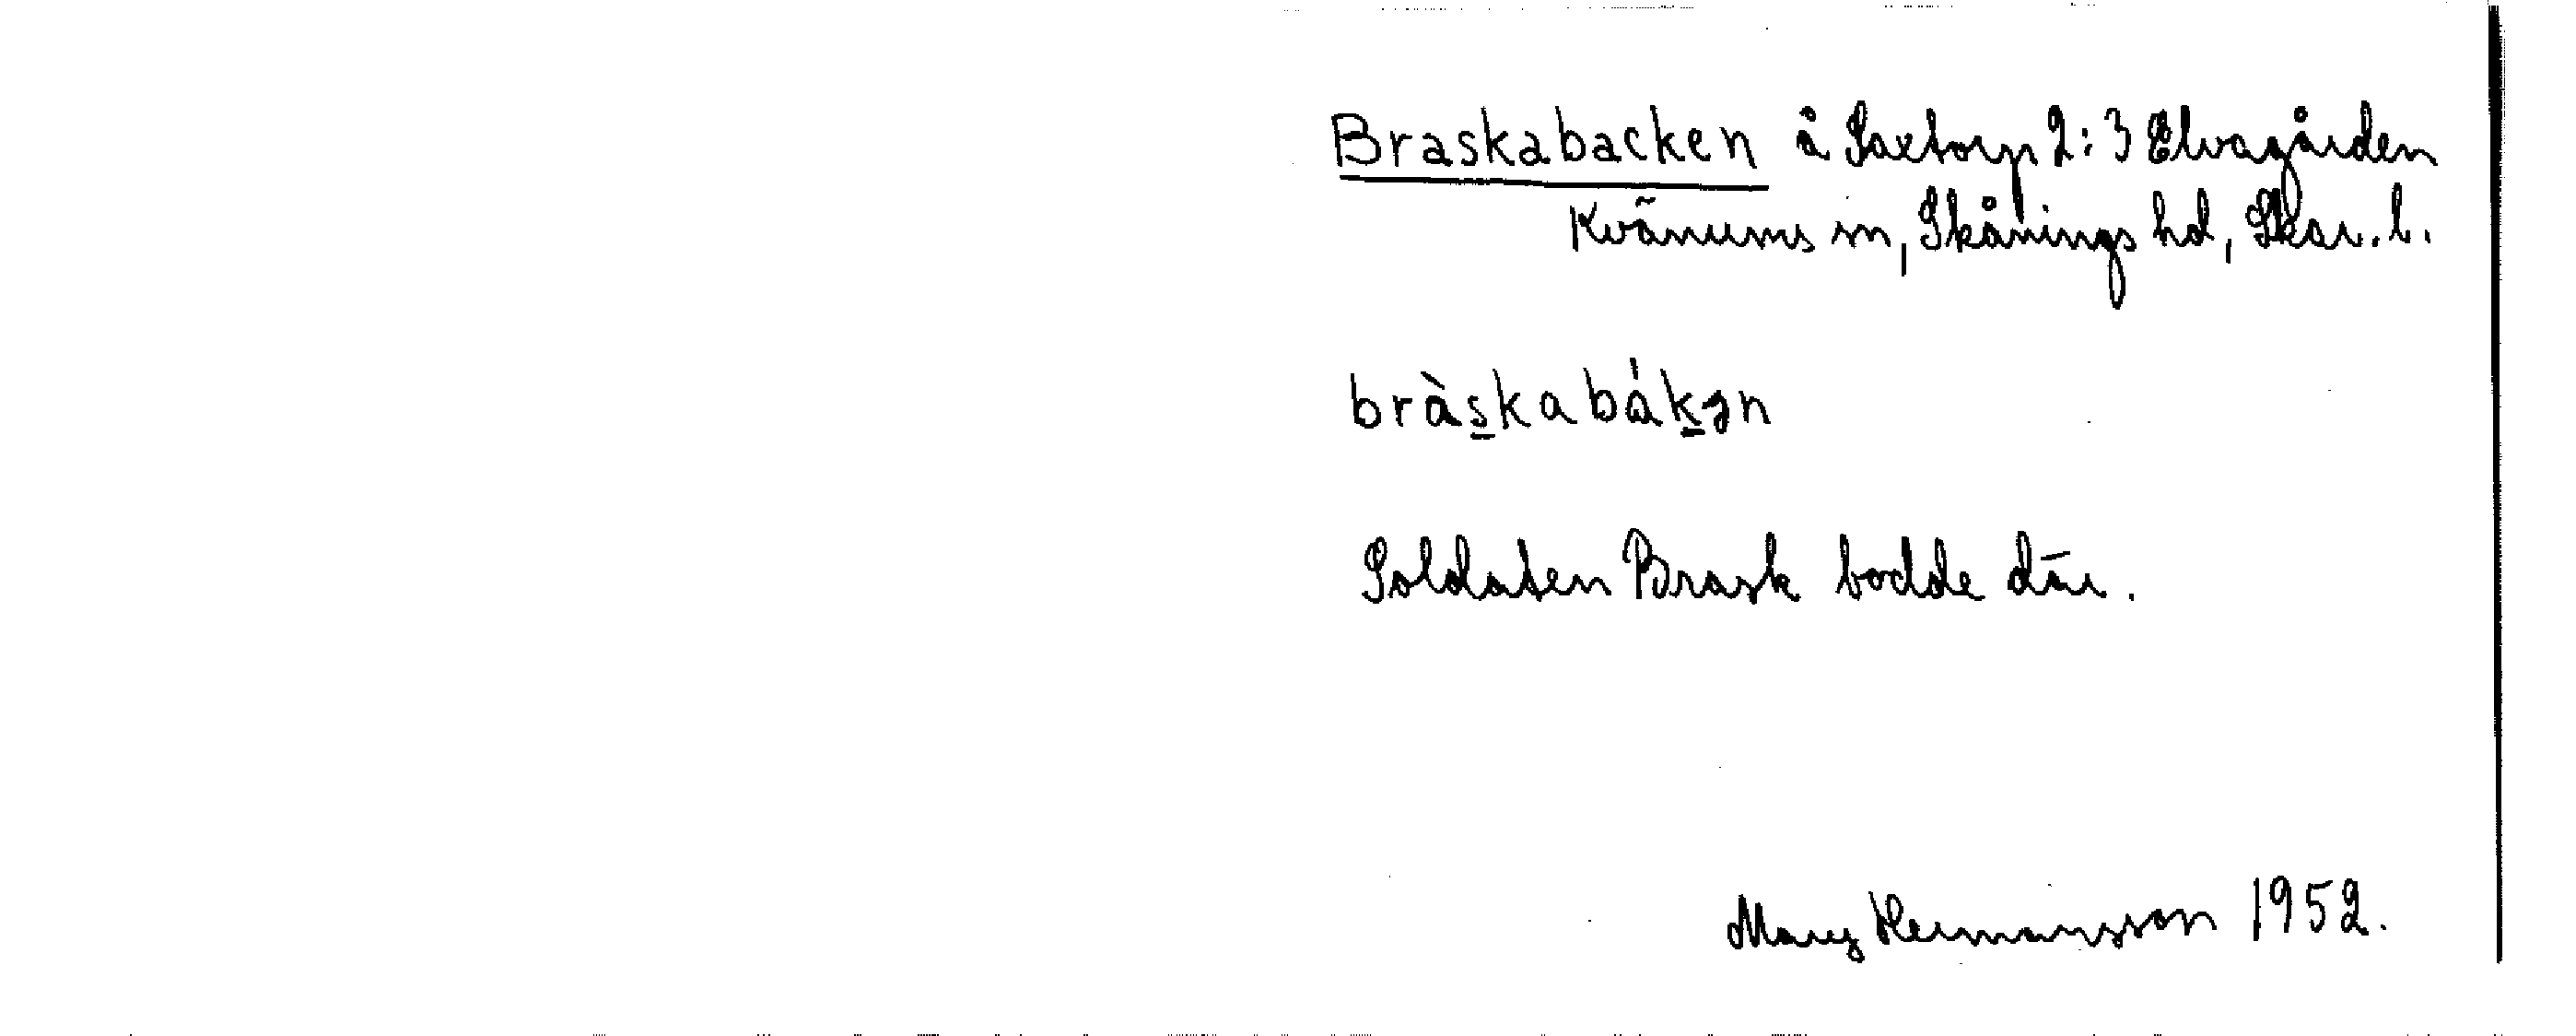 Braskabacken å Saxtorp 2:3 Elvagården
Kvänums sn, Skånings hd, Skar. l.
bràs̲kabák̲ən
Soldaten Brask bodde där.
Mary Hermansson 1952.